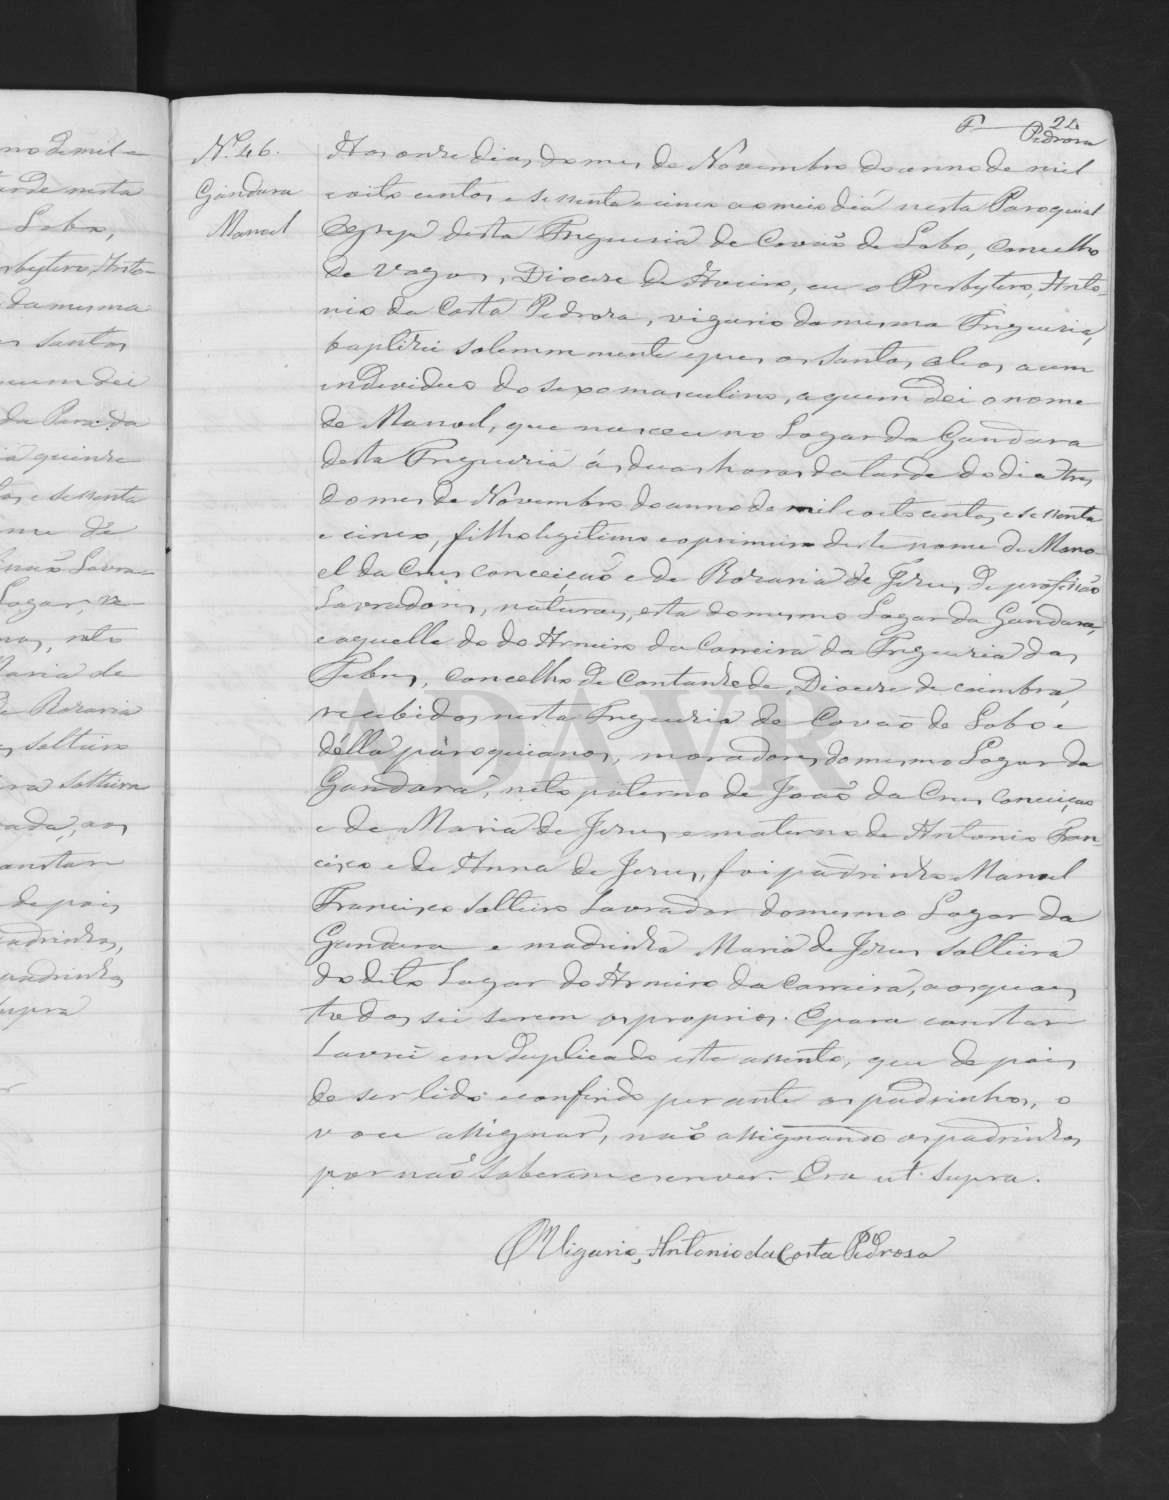 F 24
Pedrosa
N.º 46.
Gandara
Manoel
Aos onze dias do mes de Novembro do anno de mil
oito centos e sessenta e cinco ao meio diá nesta Paroquial
Egreja desta Freguesia de Covaõ de Lobo, Concelho
de Vagos, Diocese de Aveiro, eu o Presbytero, Anto-
nio da Costa Pedrosa, vigario da mesma Freguesia,
baptizei solemnmente e pus os santos oleos a um
individuo do sexo masculino, a quem dei o nome
de Manoel, que nasceu no Logar da Gandara
desta Freguesia ás duas horas da tarde do dia tres
do mes de Novembro do anno de mil oito centos e sessenta
e cinco, filho legitimo e o primeiro deste nome de Mano-
el da Crus Conceiçaõ e de Rozaria de Jesus de profissaõ
Lavradores, naturaes, esta do mesmo Logar da Gandara,
e aquelle do do Arneiro da Carreira da Freguesia das
Febres, Concelho de Cantanhede, Diocese de Coimbra,
recebidos nesta Freguesia de Covaõ de Lobo e
délla pároquianos, moradores do mesmo Logar da
Gandara, neto paterno de Joaõ da Crus Conceiçaõ
e de Maria de Jesus e materno de Antonio Fran-
cisco e de Anna de Jesus, foi padrinho Manoel
Francisco solteiro Lavrador do mesmo Logar da
Gandara e madrinha Maria de Jesus solteira
do dito Lugar do Arneiro da Carreira, aos quaes
todos sei serem os proprios. E para constar
Lavrei em duplicado este assento, que depois
de ser lido e conferido perante os padrinhos, o
vou assignar, naõ assignando os padrinhos
por naõ saberem escrever. Era ut supra.
O Vigario, Antonio da Costa Pedrosa
ADAVR
no de mil e
tarde nesta
Lobo,
sbytero, Anto-
da mesma
santos
um dei
da Para da
quinze
e sessenta
me de
Lavra-
Logar,
neto
Maria de
de Rozaria
solteiro
solteira
aos
constar
depois
padrinhos,
padrinhos
supra